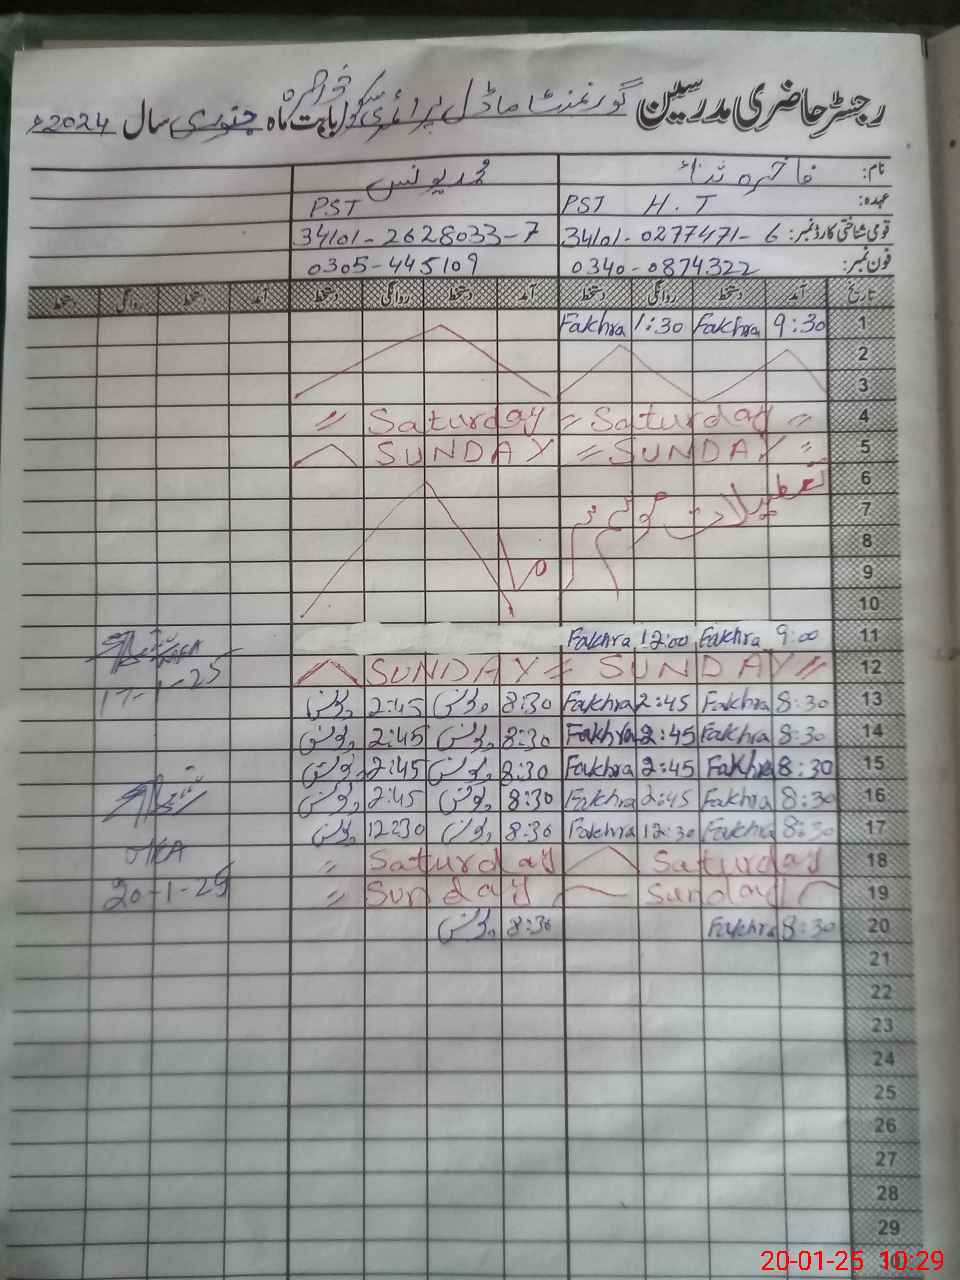 رجسٹر حاضری مدرسین گورنمنٹ ماڈل پرائمری سکول بابت ماہ جنوری سال 2024ء
نام: فاخرہ ثناء محمد یونس
عہدہ: PST H.T PST
قومی شناختی کارڈ نمبر: 34101-0277471-6 34101-2628033-7
فون نمبر: 0340-0874322 0305-445109
تاریخ آمد دستخط روانگی دستخط آمد دستخط روانگی دستخط آمد دستخط روانگی دستخط
1 9:30 Fakhra 1:30 Fakhra
2
3
4 = Saturday = Saturday =
5 = SUNDAY = SUNDAY
6 تعطیلات موسم
7
8
9
10
11 9:00 Fakhra 12:00 Fakhra
12 = SUNDAY = SUNDAY
13 8:30 Fakhra 2:45 Fakhra 8:30 یونس 2:45 یونس
17-1-25
14 8:30 Fakhra 2:45 Fakhra 8:30 یونس 2:45 یونس
15 8:30 Fakhra 2:45 Fakhra 8:30 یونس 2:45 یونس
16 8:30 Fakhra 2:45 Fakhra 8:30 یونس 2:45 یونس
17 8:30 Fakhra 12:30 Fakhra 8:30 یونس 12:30 یونس
18 Saturday Saturday =
19 Sunday Sunday =
20-1-25
20 8:30 Fakhra 8:30 یونس
21
22
23
24
25
26
27
28
29
30
20-01-25 10:29